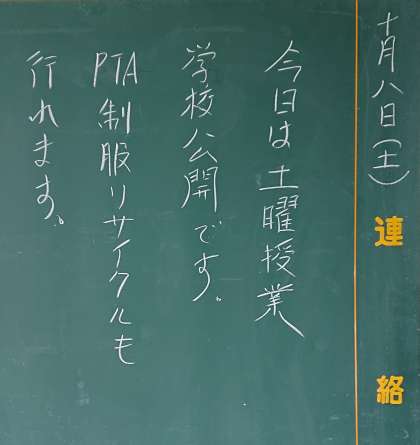 十月八日(土)
連絡
今日は土曜授業
学校公開です。
PTA制服リサイクルも
行れます。